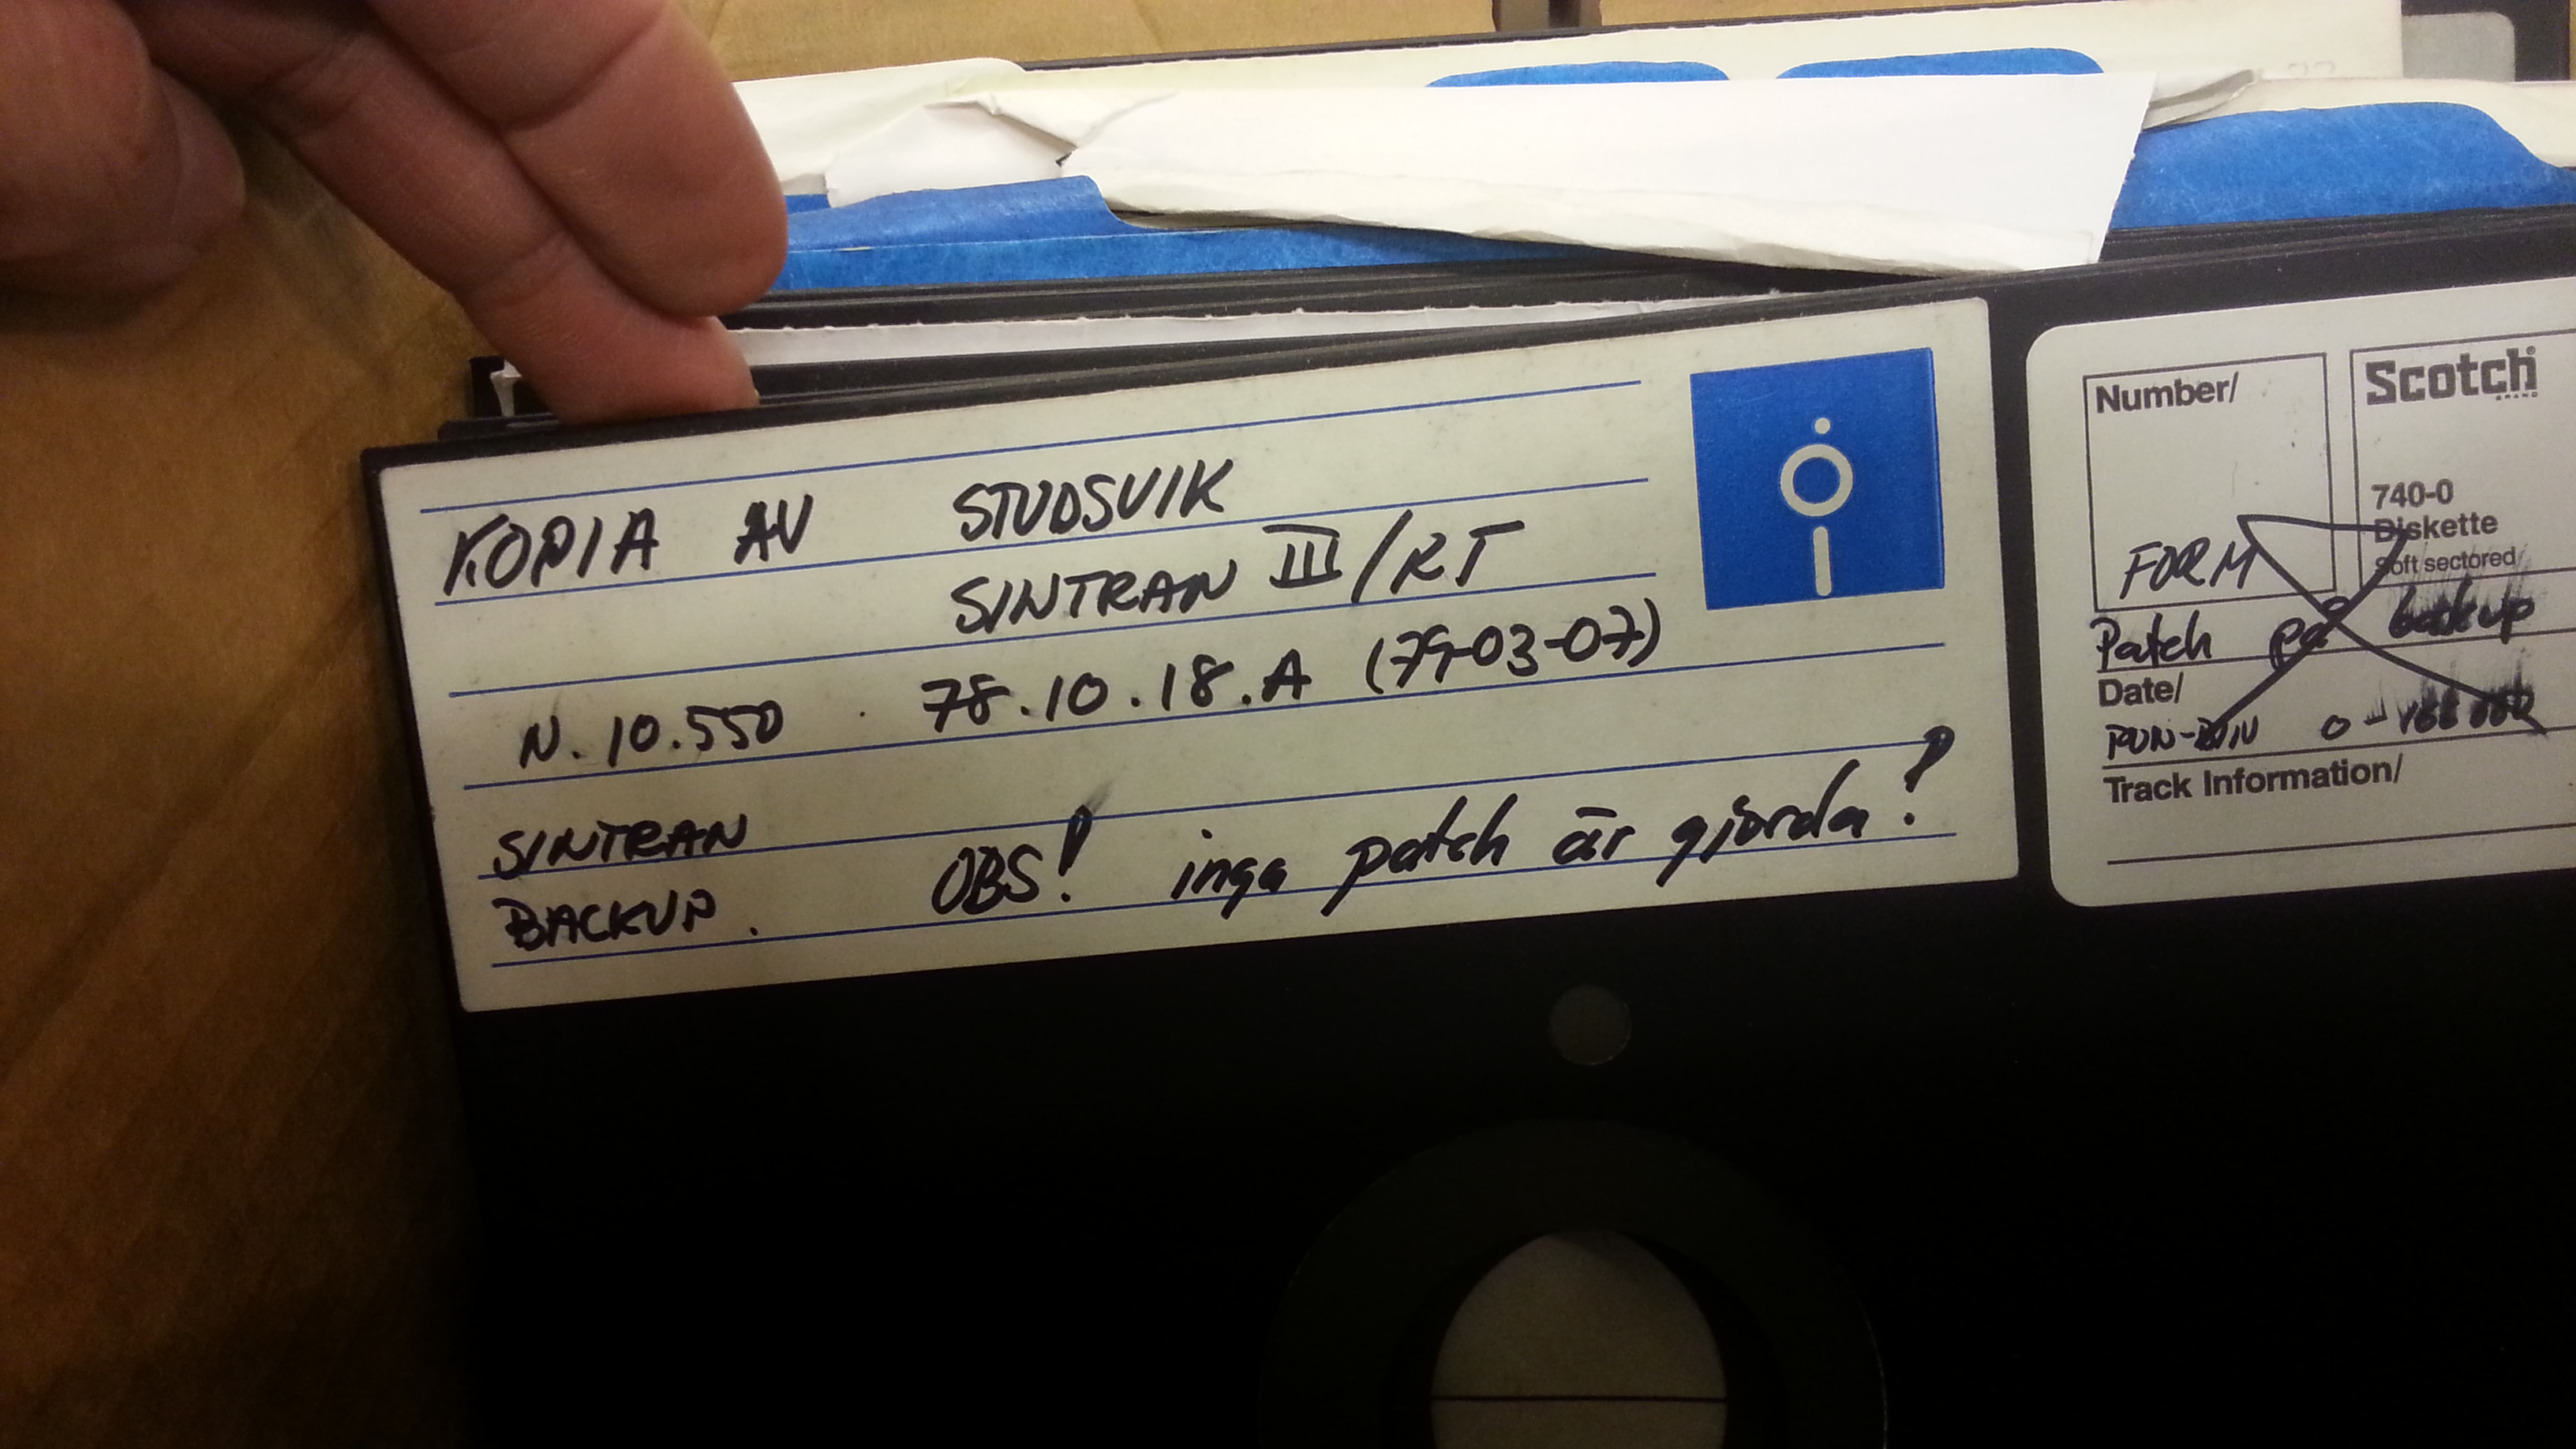 KOPIA AV STUDSVIK
SINTRAN III/RT
N. 10.550 78.10.18.A (79-03-07)
SINTRAN
BACKUP. OBS! inga patch är gjorda!
Number/
FORM
Scotch
BRAND
740-0
Diskette
Soft sectored/
Patch på backup
Date/
0 -
Track Information/